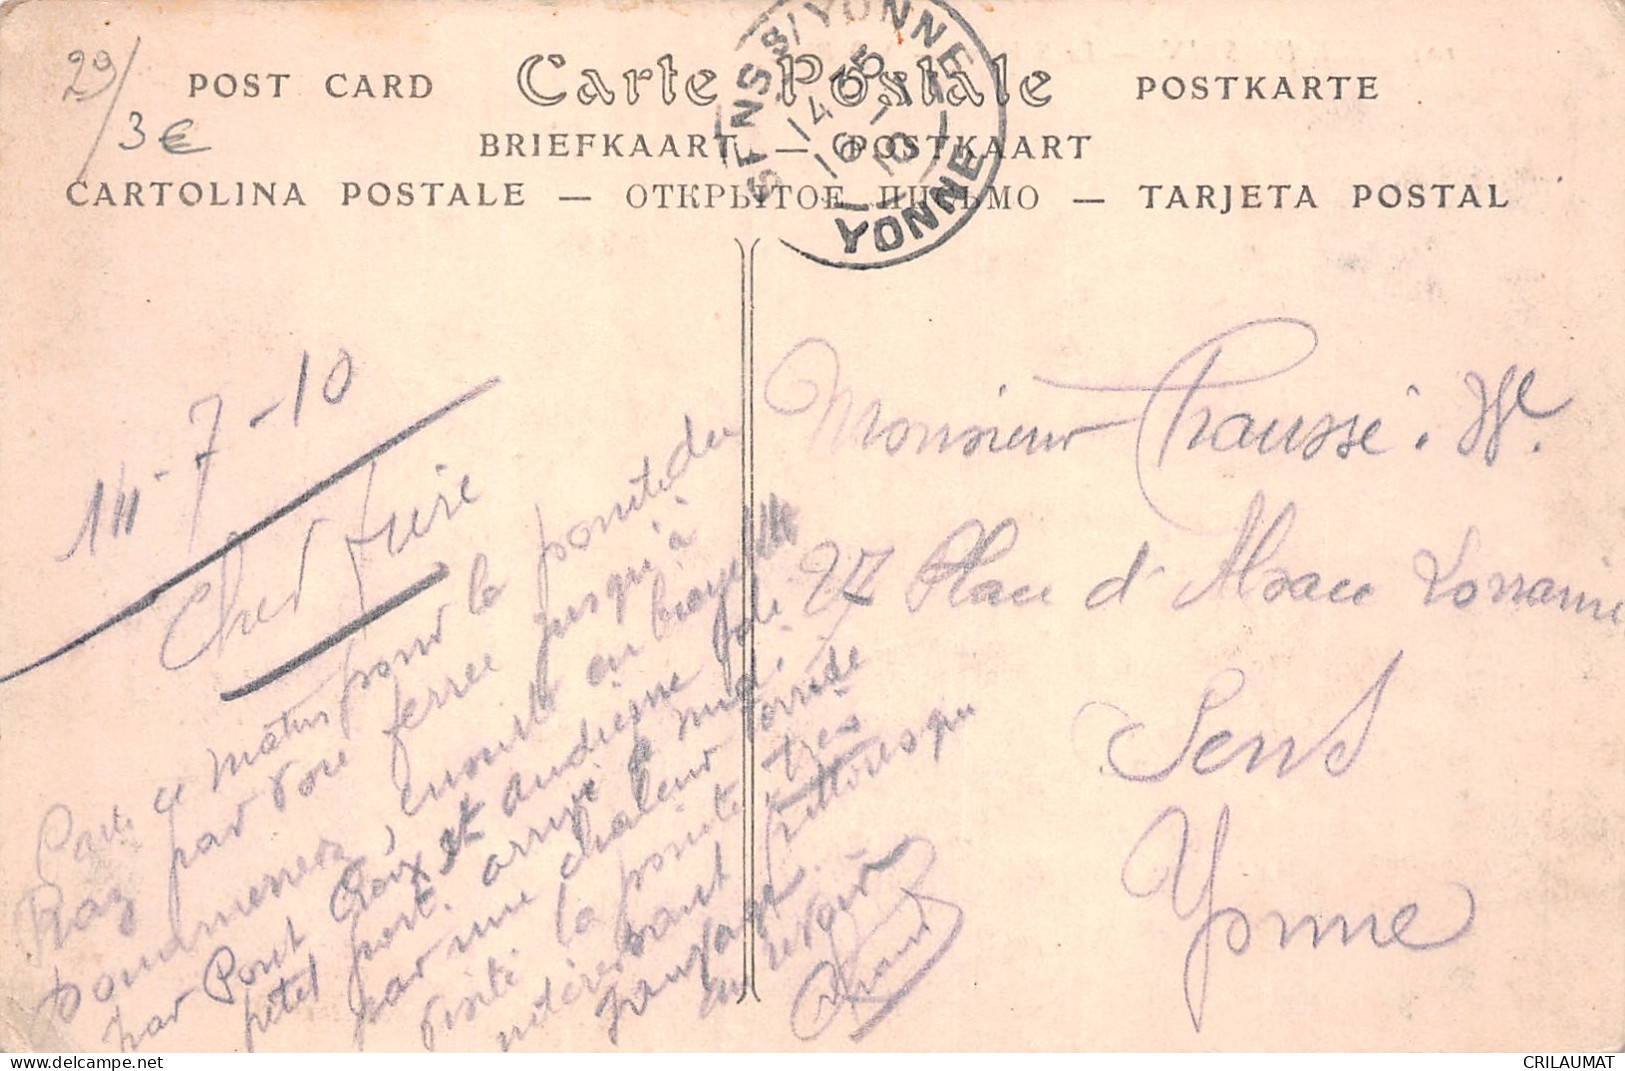 29/
3€
POST CARD Carte Postale POSTKARTE
BRIEFKAART — POSTKAART
CARTOLINA POSTALE — ОТКРЫТОЕ ПИСЬМО — TARJETA POSTAL
SENS S/YONNE
14 35
16 -7
10
YONNE
14-7-10
Cher frère
Parti ce matin pour la pointe du
Raz par voie ferrée jusqu'à
Douarnenez, ensuite en bicyclette
par Pont Croix et audierne joli
petit port. arrivé à midi
par une chaleur torride
visité la pointe très
intéressant pittoresque
paysage.
au revoir
Monsieur Chaussé. W.
27 Place d'Alsace Lorraine
Sens
Yonne
CRILAUMAT